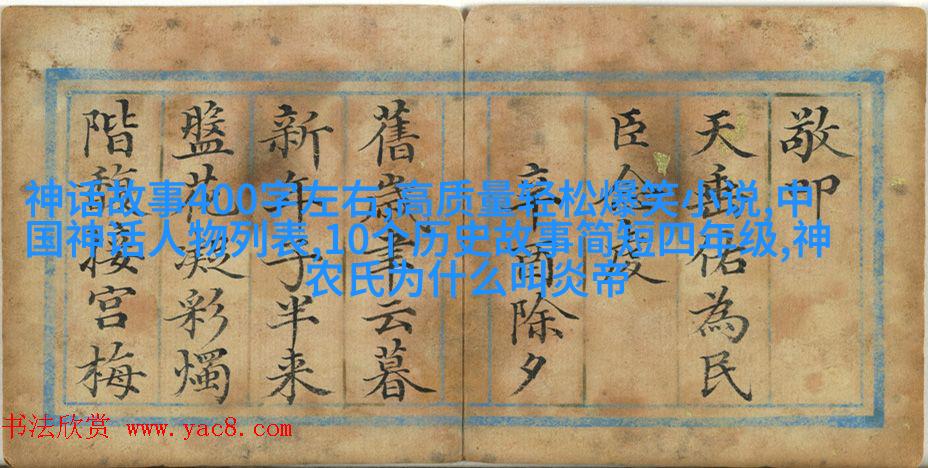 敬
天垂佑為民
臣
辛酉除夕
舊歲聿云暮
新年子半来
盤花凝彩燭
階馥接宮梅
神话故事400字左右,高质量轻松爆笑小说,中
国神话人物列表,10个历史故事简短四年级,神
农氏为什么叫炎帝
书法欣赏 www.yac8.com